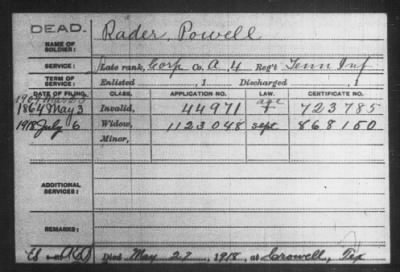 DEAD.
Rader, Powell
NAME OF SOLDIER:
SERVICE: Late rank, Corp Co. A, 4 Reg't Tenn Inf
TERM OF SERVICE: Enlisted 1 Discharged 1
DATE OF FILING. CLASS. APPLICATION NO. LAW. CERTIFICATE NO.
1864 May 3 Invalid, 44971 age 723785
1918 July 6 Widow, 1123048 sept 868150
Minor,
ADDITIONAL SERVICES:
REMARKS:
Died May 27, 1918, at Crowell, Tex